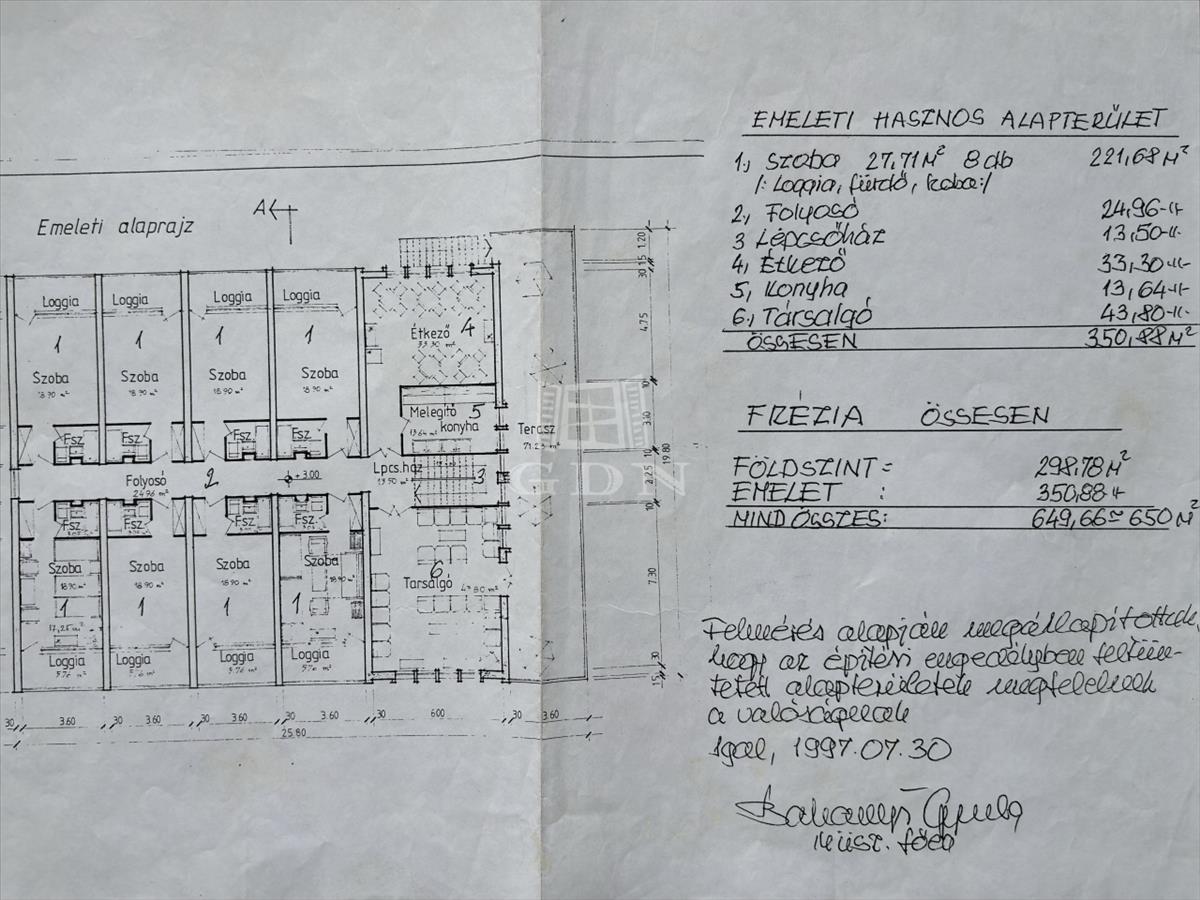 Emeleti alaprajz
A
Loggia Loggia Loggia Loggia
1 1 1 1
Szoba Szoba Szoba Szoba
18.90 m² 18.90 m² 18.90 m² 18.90 m²
Fsz. Fsz. Fsz. Fsz.
Étkező 4
33.30 m²
Melegítő 5
konyha
13.64 m²
Terasz
71.23 m²
Folyosó 2
24.96 m²
+3.00
Lpcs.ház 3
13.50 m²
Fsz. Fsz. Fsz. Fsz.
Szoba Szoba Szoba Szoba
18.90 m² 18.90 m² 18.90 m² 18.90 m²
1 1 1 1
17,25 m²
Loggia Loggia Loggia Loggia
5.76 m² 5.76 m² 5.76 m² 5.76 m²
6
Társalgó 43.80 m²
30 3.60 30 3.60 30 3.60 30 3.60 30 600 30 3.60
25.80
1.20
30 15
4.75
10
3.30
10
2.25
10
7.30
30
15
19.80
GDN
EMELETI HASZNOS ALAPTERÜLET
1., Szoba 27,71 M² 8 db 221,68 M²
/: Loggia, fürdő, szoba:/
2., Folyosó 24,96 -"-
3 Lépcsőház 13,50 -"-
4., Étkező 33,30 -"-
5, Konyha 13,64 -"-
6., Társalgó 43,80 -"-
ÖSSESEN 350,88 M²
FRÉZIA ÖSSESEN
FÖLDSZINT = 298,78 M²
EMELET : 350,88 -"-
MINDÖSSZES: 649,66 ≃ 650 M²
Felmérés alapján megállapítottuk,
hogy az építési engedélyben feltün-
tetett alapterületek megfelelnek
a valóságnak
Igal, 1997.07.30
Műsz. főea